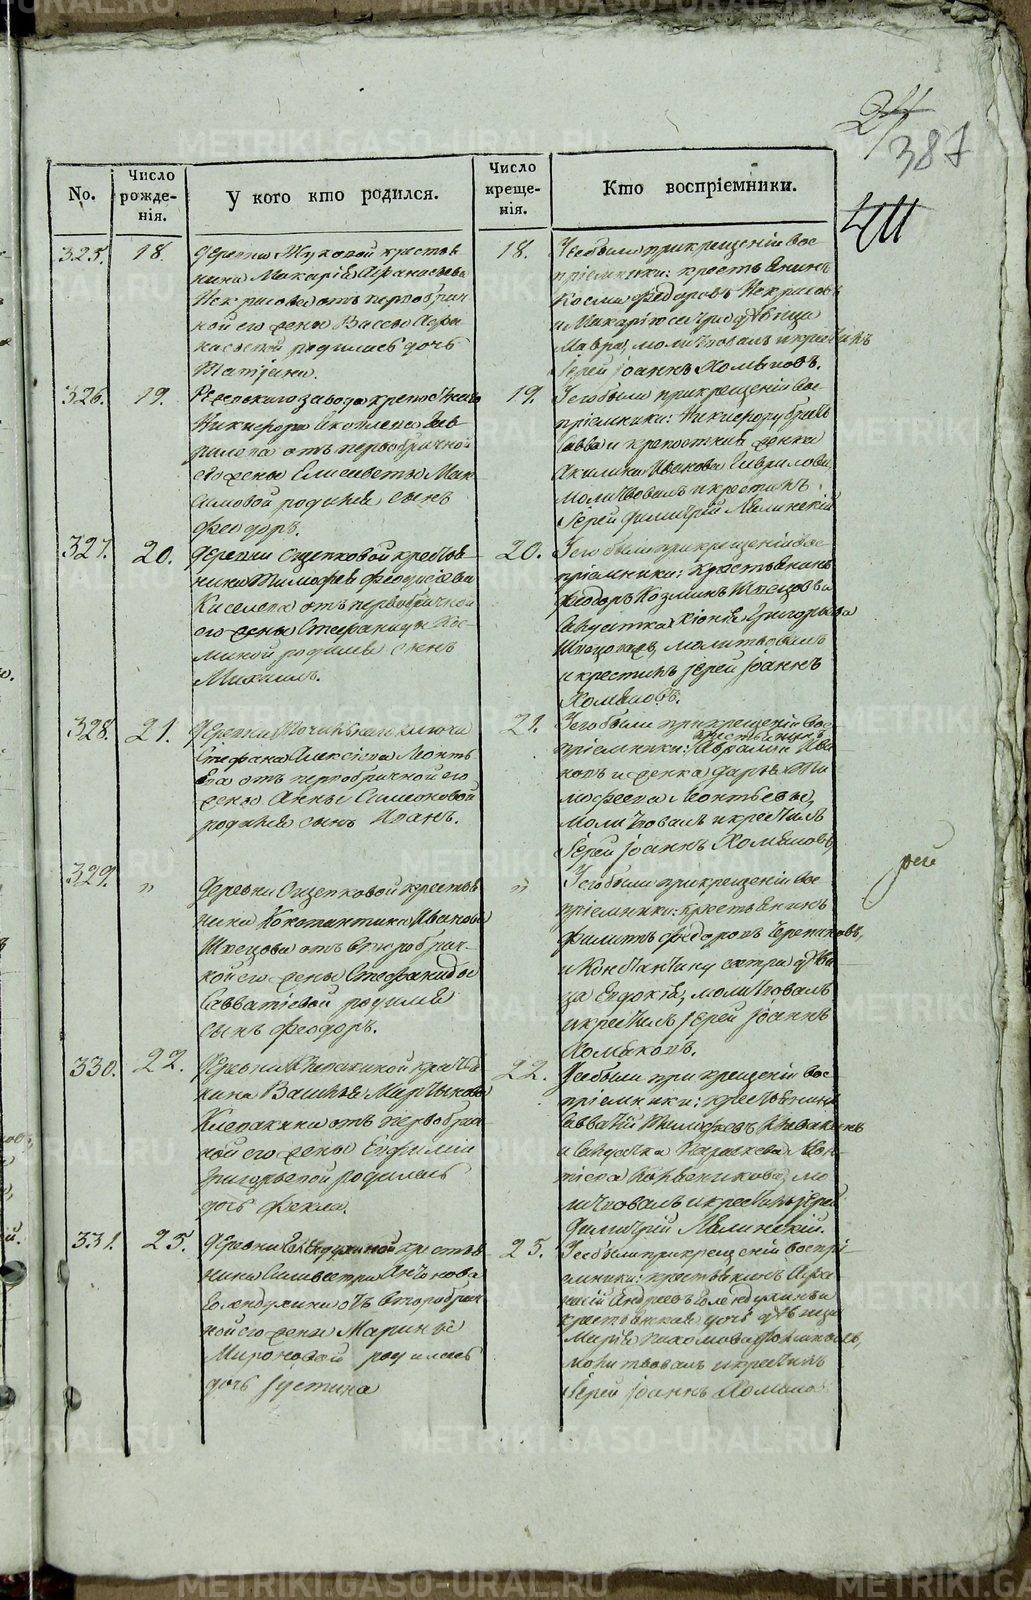 24
387
411
No.
Число рожде-нія.
У кого кто родился.
Число креще-нія.
Кто воспріемники.
325. 18.
Деревни Жуковой крестья
нина Макарія Афанасьева
Некрасова отъ первобрач
ной его жены Вассы Афа
насьевой родилась дочь
Татіана.
18.
У ее были при крещеніи вос
пріемники: крестьянинъ
Косма Федоровъ Некрасовъ
и Макарію сестра дѣвица
Мавра, молитвовалъ и крестилъ
Іерей Іоаннъ Хомяковъ.
326. 19.
Ревдскаго завода
Никифора Га-
врилова отъ первобрачной
его жены Елисаветы Мак
симовой родился сынъ
Феодоръ.
19.
У его были при крещеніи вос-
пріемники: Никифору братъ
Савва и женка
Акилина Иванова Гаврилова,
молитвовалъ и крестилъ
Іерей Димитрій Лялинскій
327. 20.
Деревни Ощепковой крестья
нина Тимофея Феодосѣева
Киселева отъ первобрачной
его жены Стефаниды Кос
миной родился сынъ
Михаилъ.
20.
У его были при крещеніи вос-
пріемники: крестьянинъ
Феодоръ Козминъ Швецовъ и
Хіонія Григорьева
Швецова, молитвовалъ
и крестилъ Іерей Іоаннъ
Хомяковъ.
328. 21.
Деревни ключа
Стефана Алексіева Леонть
ева отъ первобрачной его
жены Анны Симеоновой
родился сынъ Иванъ.
21.
У его были при крещеніи вос-
крестьянинъ
пріемники: Авраамъ Ива
новъ и женка Дарья Ти
мофеева Леонтьевы,
молитвовалъ и крестилъ
Іерей Іоаннъ Хомяковъ
329. "
Деревни Ощепковой крестья
нина Константина Иванова
Швецова отъ второбрач-
ной его жены Стефаниды
Савватіевой родился
сынъ Феодоръ.
"
У его были при крещеніи вос
пріемники: крестьянинъ
Филиппъ Федоровъ Черепановъ,
и Константину сестра дѣви
ца Евдокія, молитвовалъ
и крестилъ Іерей Іоаннъ
Хомяковъ.
330. 22.
Деревни Клепикиной крестья
нина Василья Мартынова
Клепакина отъ первобрач
ной его жены Евфиміи
Григорьевой родилась
дочь Фекла.
22.
У ее были при крещеніи вос-
пріемники: крестьянинъ
Савватій Тимофеевъ Клепакинъ
и Параскева Леон-
тіева мо
литвовалъ и крестилъ Іерей
Димитрій Лялинскій.
331. 25.
Деревни крестья
нина Силивестра Антонова
Еолендухина отъ второбрач
ной его жены Марины
Мироновой родилась
дочь Іустина
25.
У ее были при крещеніи воспрі-
емники: крестьянинъ Афа
насій Андреевъ Еолендухинъ и
крестьянская дочь дѣвица
Марія
молитвовалъ и крестилъ
Іерей Іоаннъ Хомяко
METRIKI.GASO-URAL.RU